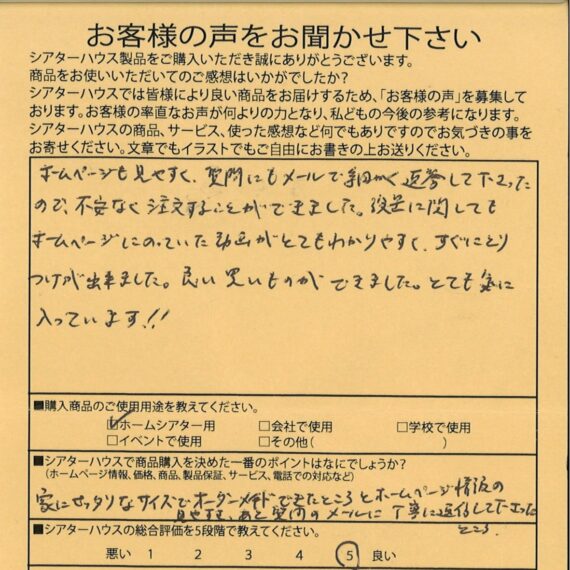 お客様の声をお聞かせ下さい
シアターハウス製品をご購入いただき誠にありがとうございます。
商品をお使いいただいてのご感想はいかがでしたか？
シアターハウスでは皆様により良い商品をお届けするため、「お客様の声」を募集して
おります。お客様の率直なお声が何よりの力となり、私どもの今後の参考になります。
シアターハウスの商品、サービス、使った感想など何でもありですのでお気づきの事を
お寄せください。文章でもイラストでもご自由にお書きの上お送りください。
ホームページも見やすく、質問にもメールで細かく返答して下さった
ので、不安なく注文することができました。設置に関しても
ホームページにのっていた動画がとてもわかりやすく、すぐにとり
つけが出来ました。良い買いものができました。とても気に
入っています!!
■購入商品のご使用用途を教えてください。
☑ホームシアター用 □会社で使用 □学校で使用
□イベントで使用 □その他( )
■シアターハウスで商品購入を決めた一番のポイントはなにでしょうか？
(ホームページ情報、価格、商品、製品保証、サービス、電話での対応など)
家にピッタリなサイズでオーダーメイドできたところとホームページ情報の
見やすさ、あと質問のメールに丁寧に返信して下さった
ところ。
■シアターハウスの総合評価を5段階で教えてください。
悪い 1 2 3 4 5 良い